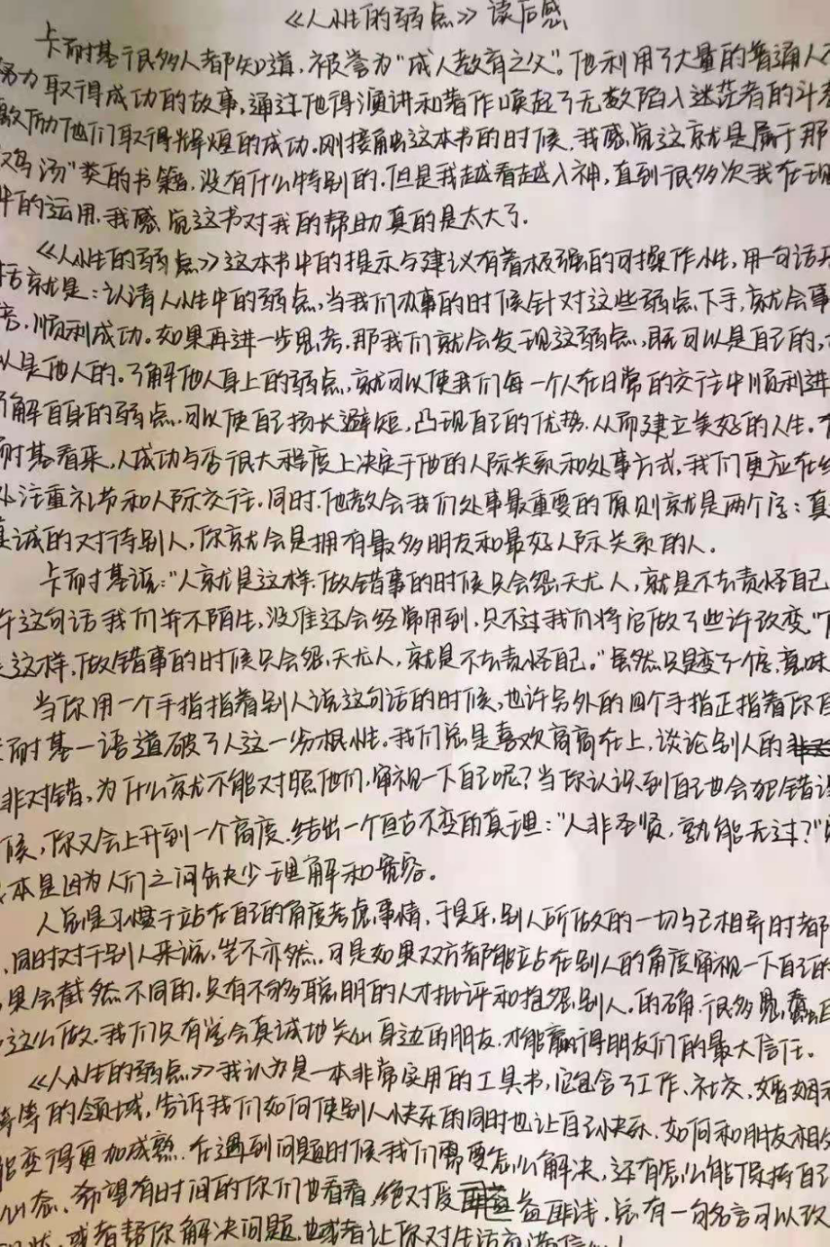 《人性的弱点》读后感
卡耐基于很多人都知道,被誉为"成人教育之父"。他利用了大量的普通人不
努力取得成功的故事,通过他得演讲和著作唤起了无数陷入迷茫者的斗
激励他们取得辉煌的成功。刚接触这本书的时候,我感觉这就是属于那
汤"类的书籍,没有什么特别的,但是我越看越入神,直到很多次我在现
中的运用,我感觉这书对我的帮助真的是太大了.
《人性的弱点》这本书中的提示与建议有着极强的可操作性,用一句话
括就是:认清人性中的弱点,当我们办事的时候针对这些弱点下手,就会事
倍,顺利成功。如果再进一步思考,那我们就会发现这弱点,既可以是自己的,
以是他人的。了解他人身上的弱点,就可以使我们每一个人在日常的交往中顺利进
了解自身的弱点,可以使自己扬长避短,凸现自己的优势,从而建立美好的人生。
耐基看来,人成功与否很大程度上决定于他的人际关系和处事方式,我们更应在
外注重礼节和人际交往,同时,他教会我们处事最重要的原则就是两个字:真
真诚的对待别人,你就会是拥有最多朋友和最好人际关系的人。
卡耐基说:"人就是这样,做错事的时候只会怨天尤人,就是不去责怪自己
许这句话我们并不陌生,没准还会经常用到,只不过我们将它做了些许改变,"
是这样,做错事的时候只会怨天尤人,就是不去责怪自己。"虽然只是变了一个信,意味
当你用一个手指指着别人说这句话的时候,也许另外的四个手指正指着你自
耐基一语道破了人这一劣根性。我们总是喜欢高高在上,谈论别人的
非对错,为什么就不能对照他们,审视一下自己呢?当你认识到自己也会犯错误
候,你又会上升到一个高度,结出一个亘古不变的真理:"人非圣贤,孰能无过?"
本是因为人们之间缺少理解和宽容。
人总是习惯于站在自己的角度考虑事情,于是乎,别人所做的一切与己相异时都
,同时对于别人来说,岂不亦然。可是如果双方都能站在别人的角度审视一下自己的
果会截然不同的,只有不够聪明的人才批评和抱怨别人。的确,很多愚蠢
这么做。我们只有学会真诚地关心身边的朋友,才能赢得朋友们的最大信任。
《人性的弱点》我认为是一本非常实用的工具书,它包含了工作、社交,婚姻
等等的领域,告诉我们如何使别人快乐的同时也让自己快乐,如何和朋友相
能变得更加成熟,在遇到问题时候我们需要怎么解决,还有怎么能保持自己
心态、希望有时间的你们也看看,绝对受益匪浅,总有一句名言可以改
现状,或者帮你解决问题,也或者让你对生活充满信心!